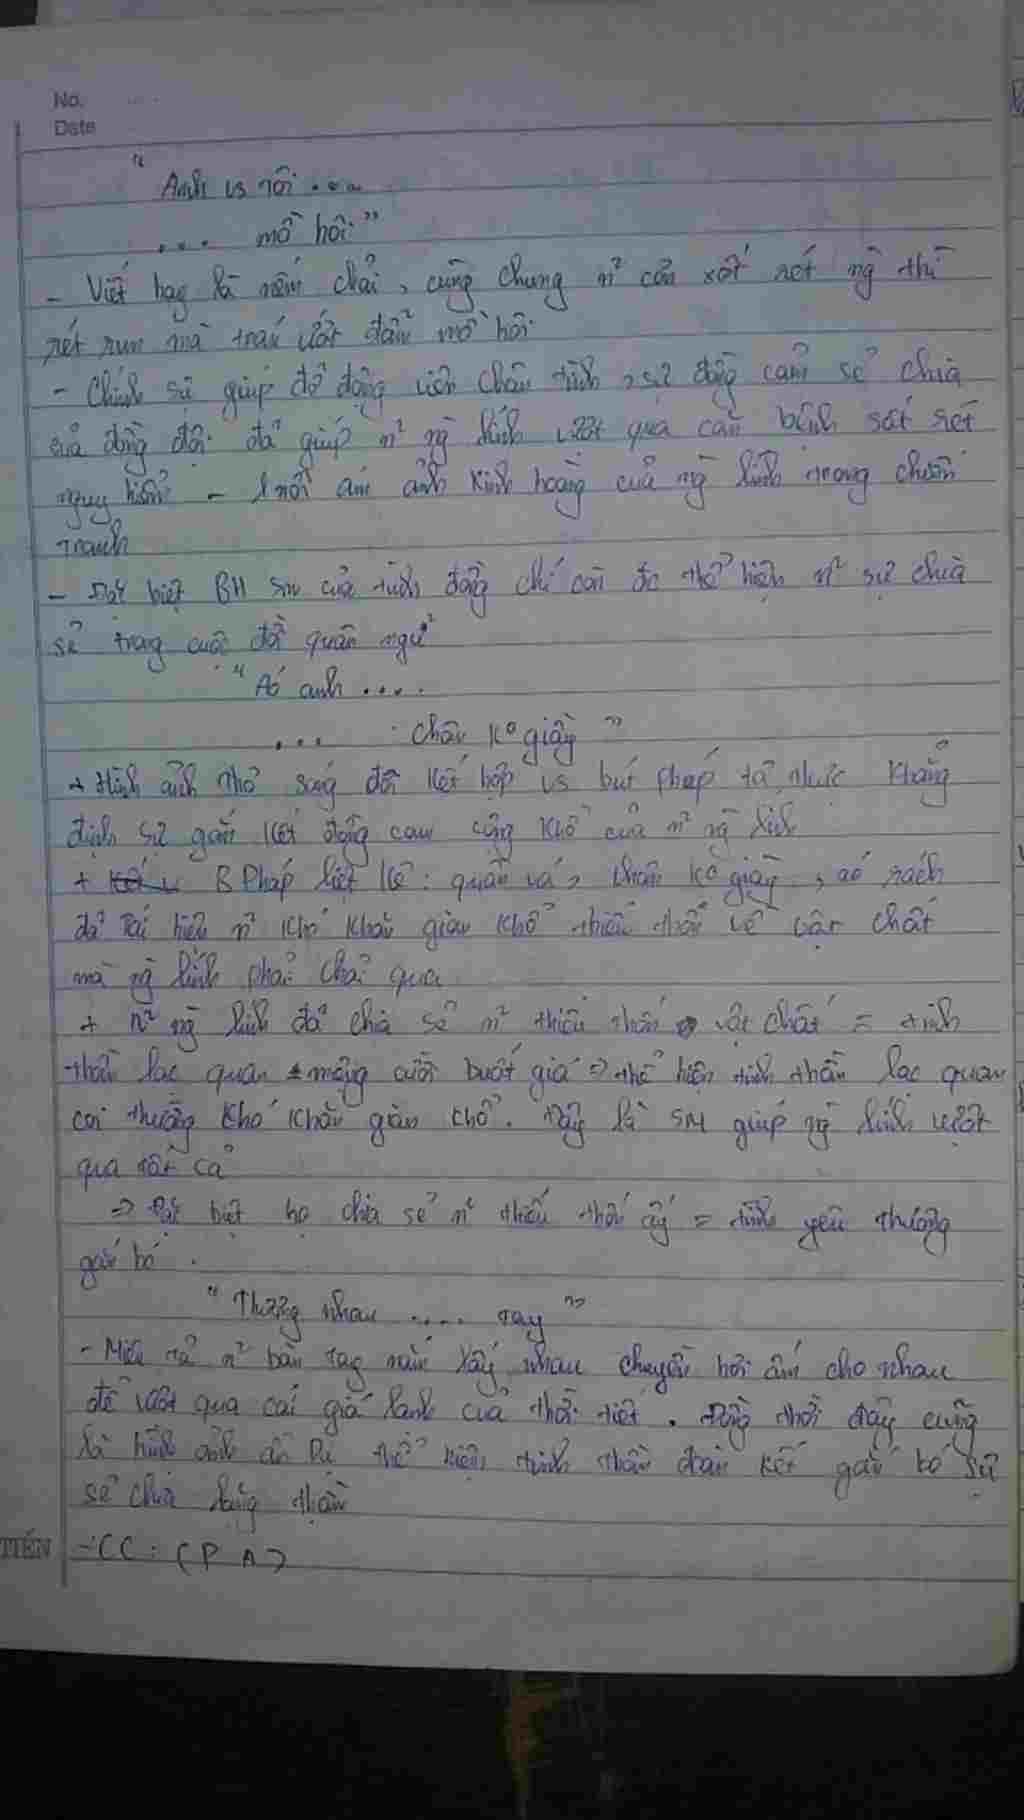 No.
Date
"Anh vs tôi ....
.... mồ hôi"
- Viết hay là nếm chải, cùng chung n² cơn sốt rét ng thì
rét run mà trán ướt đẫm mồ hôi
- Chính sự giúp đỡ động viên chân tình, sự đồng cảm sẻ chia
của đồng đội đã giúp n² ng lính vượt qua căn bệnh sốt rét
nguy hiểm - 1 nỗi ám ảnh kinh hoàng của ng lính trong chiến
tranh
- Đặt biệt BH SM của tình đồng chí còn đc thể hiện n² sự chia
sẻ trong cuộc đời quân ngũ
"Áo anh ....
... chân ko giày"
+ Hình ảnh thơ sóng đôi kết hợp vs bút pháp tả thực khẳng
định sự gắn kết đồng cam cộng khổ của n² ng lính
+ B Pháp liệt kê: quần vá, chân ko giày, áo rách
đã tái hiện n² khó khăn gian khổ thiếu thốn về vật chất
mà ng lính phải chải qua
+ n² ng lính đã chia sẻ n² thiếu thốn vật chất = tinh
thần lạc quan miệng cười buốt giá => thể hiện tinh thần lạc quan
coi thường khó khăn gian khổ. Đây là SM giúp ng lính vượt
qua tất cả
=> Đặt biệt họ chia sẻ n² thiếu thốn ấy = tình yêu thương
gắn bó.
"Thương nhau .... tay"
- Miêu tả n² bàn tay nắm lấy nhau chuyền hơi ấm cho nhau
để vượt qua cái giá lạnh của thời tiết. Đồng thời đây cũng
là hình ảnh ẩn dụ thể hiện tinh thần đoàn kết gắn bó sự
sẻ chia thầm
TIẾN
- CC: (P A)